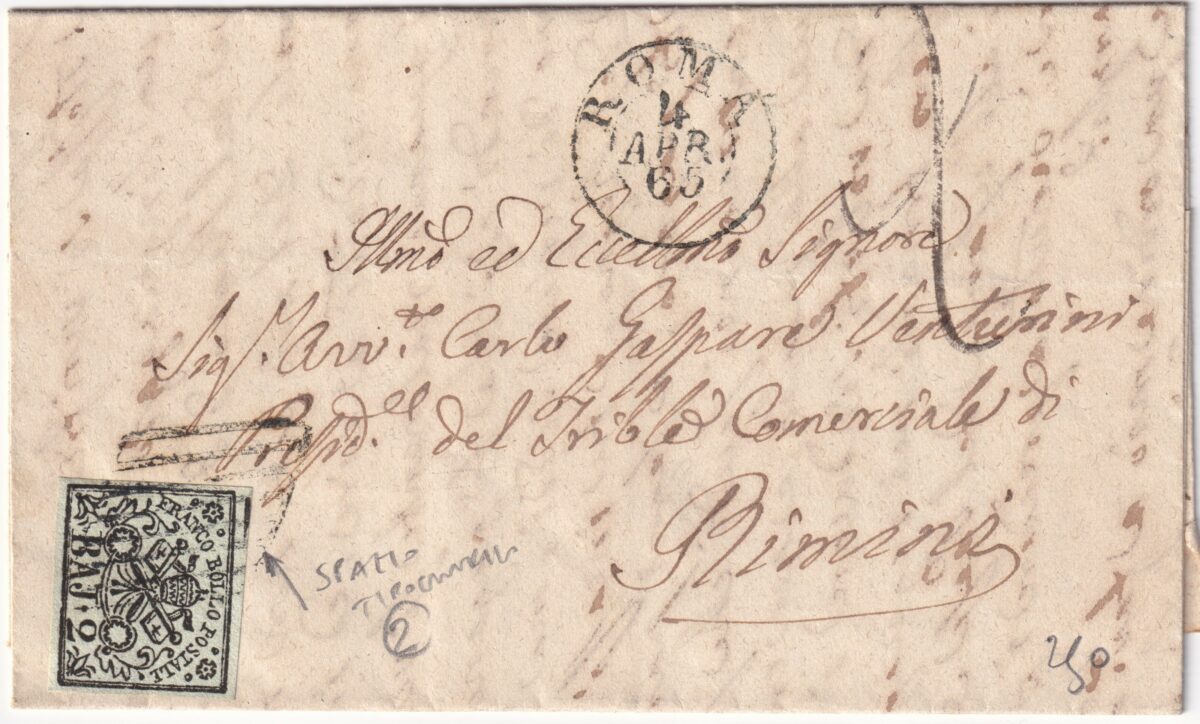 ROMA
4
APR.
65
Illmo ed Eccellmo Signore
Sig. Avv.to Carlo Gaspare Venturini
Presid.e del Trible Comerciale di
Rimini
FRANCO BOLLO POSTALE
BAJ. 2
SPAZIO
2
250